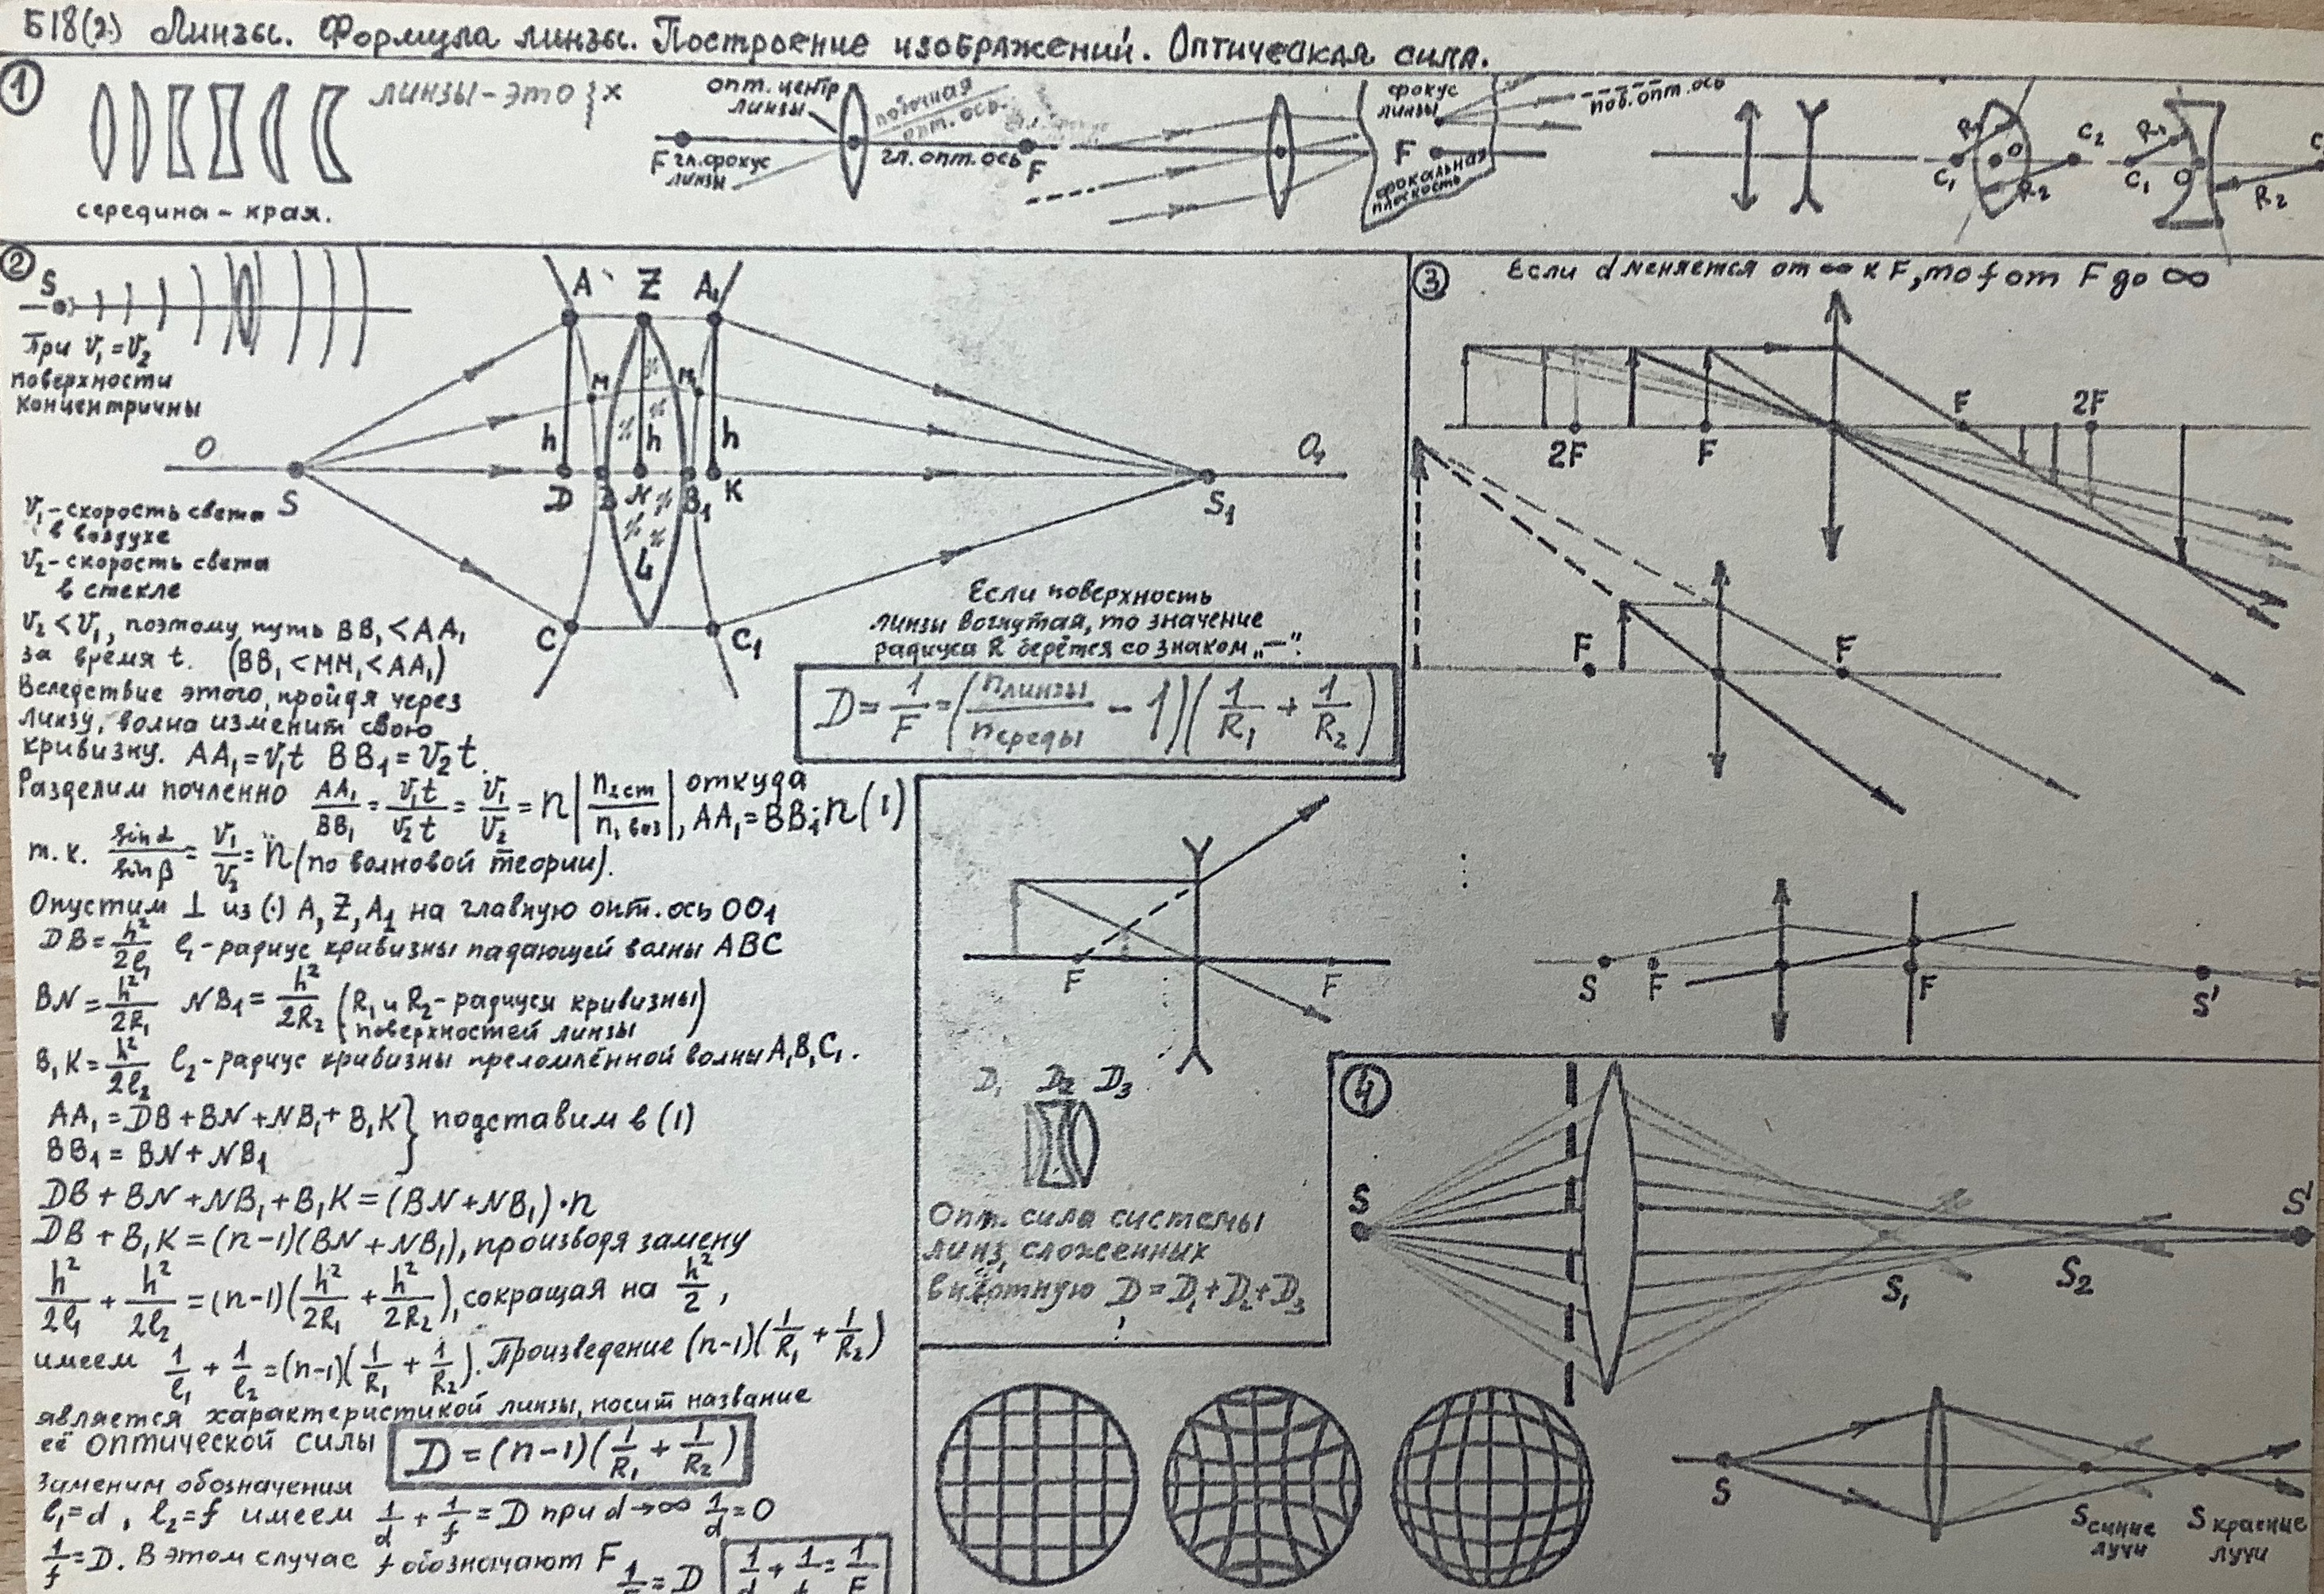 Б18(2) Линзы. Формула линзы. Построение изображений. Оптическая сила.
①
линзы-это } х
середина - края.
опт. центр
линзы
побочная
опт. ось
F гл.фокус
линзы
гл. опт. ось
F
фокус
линзы
поб. опт. ось
F
фокальная
плоскость
R₁ O C₂
C₁ R₂
R₁
C₁ O R₂
②
S
При υ₁ = υ₂
поверхности
концентричны
A Z A₁
M M₁
h h h
O O₁
S D B N B₁ K S₁
L
C C₁
υ₁ - скорость света
в воздухе
υ₂ - скорость света
в стекле
υ₂ < υ₁, поэтому путь BB₁ < AA₁
за время t. (BB₁ < MM₁ < AA₁)
Вследствие этого, пройдя через
линзу, волна изменит свою
кривизну. AA₁ = υ₁t BB₁ = υ₂t.
Разделим почленно AA₁/BB₁ = υ₁t/υ₂t = υ₁/υ₂ = n |n₂ ст/n₁ воз|, откуда AA₁ = BB₁·n (1)
т.к. sin α/sin β = υ₁/υ₂ = n (по волновой теории).
Опустим ⊥ из (·) A, Z, A₁ на главную опт. ось OO₁
DB = h²/2ℓ₁ ℓ₁ - радиус кривизны падающей волны ABC
BN = h²/2R₁ NB₁ = h²/2R₂ (R₁ и R₂ - радиусы кривизны
поверхностей линзы)
B₁K = h²/2ℓ₂ ℓ₂ - радиус кривизны преломлённой волны A₁B₁C₁.
AA₁ = DB + BN + NB₁ + B₁K } подставим в (1)
BB₁ = BN + NB₁
DB + BN + NB₁ + B₁K = (BN + NB₁)·n
DB + B₁K = (n-1)(BN + NB₁), производя замену
h²/2ℓ₁ + h²/2ℓ₂ = (n-1)(h²/2R₁ + h²/2R₂), сокращая на h²/2,
имеем 1/ℓ₁ + 1/ℓ₂ = (n-1)(1/R₁ + 1/R₂). Произведение (n-1)(1/R₁ + 1/R₂)
является характеристикой линзы, носит название
её оптической силы D = (n-1)(1/R₁ + 1/R₂)
Заменим обозначения
ℓ₁ = d, ℓ₂ = f имеем 1/d + 1/f = D при d → ∞ 1/d = 0
1/f = D. В этом случае f обозначают F
1/F = D 1/d + 1/f = 1/F
Если поверхность
линзы вогнутая, то значение
радиуса R берётся со знаком „—".
D = 1/F = (nлинзы/nсреды - 1)(1/R₁ + 1/R₂)
③ Если d меняется от ∞ к F, то f от F до ∞
F 2F
2F F
F F
F F
S F F S'
D₁ D₂ D₃
Опт. сила системы
линз, сложенных
вплотную D = D₁ + D₂ + D₃
④
S S₁ S₂ S'
S
Sсиние
лучи
S красные
лучи